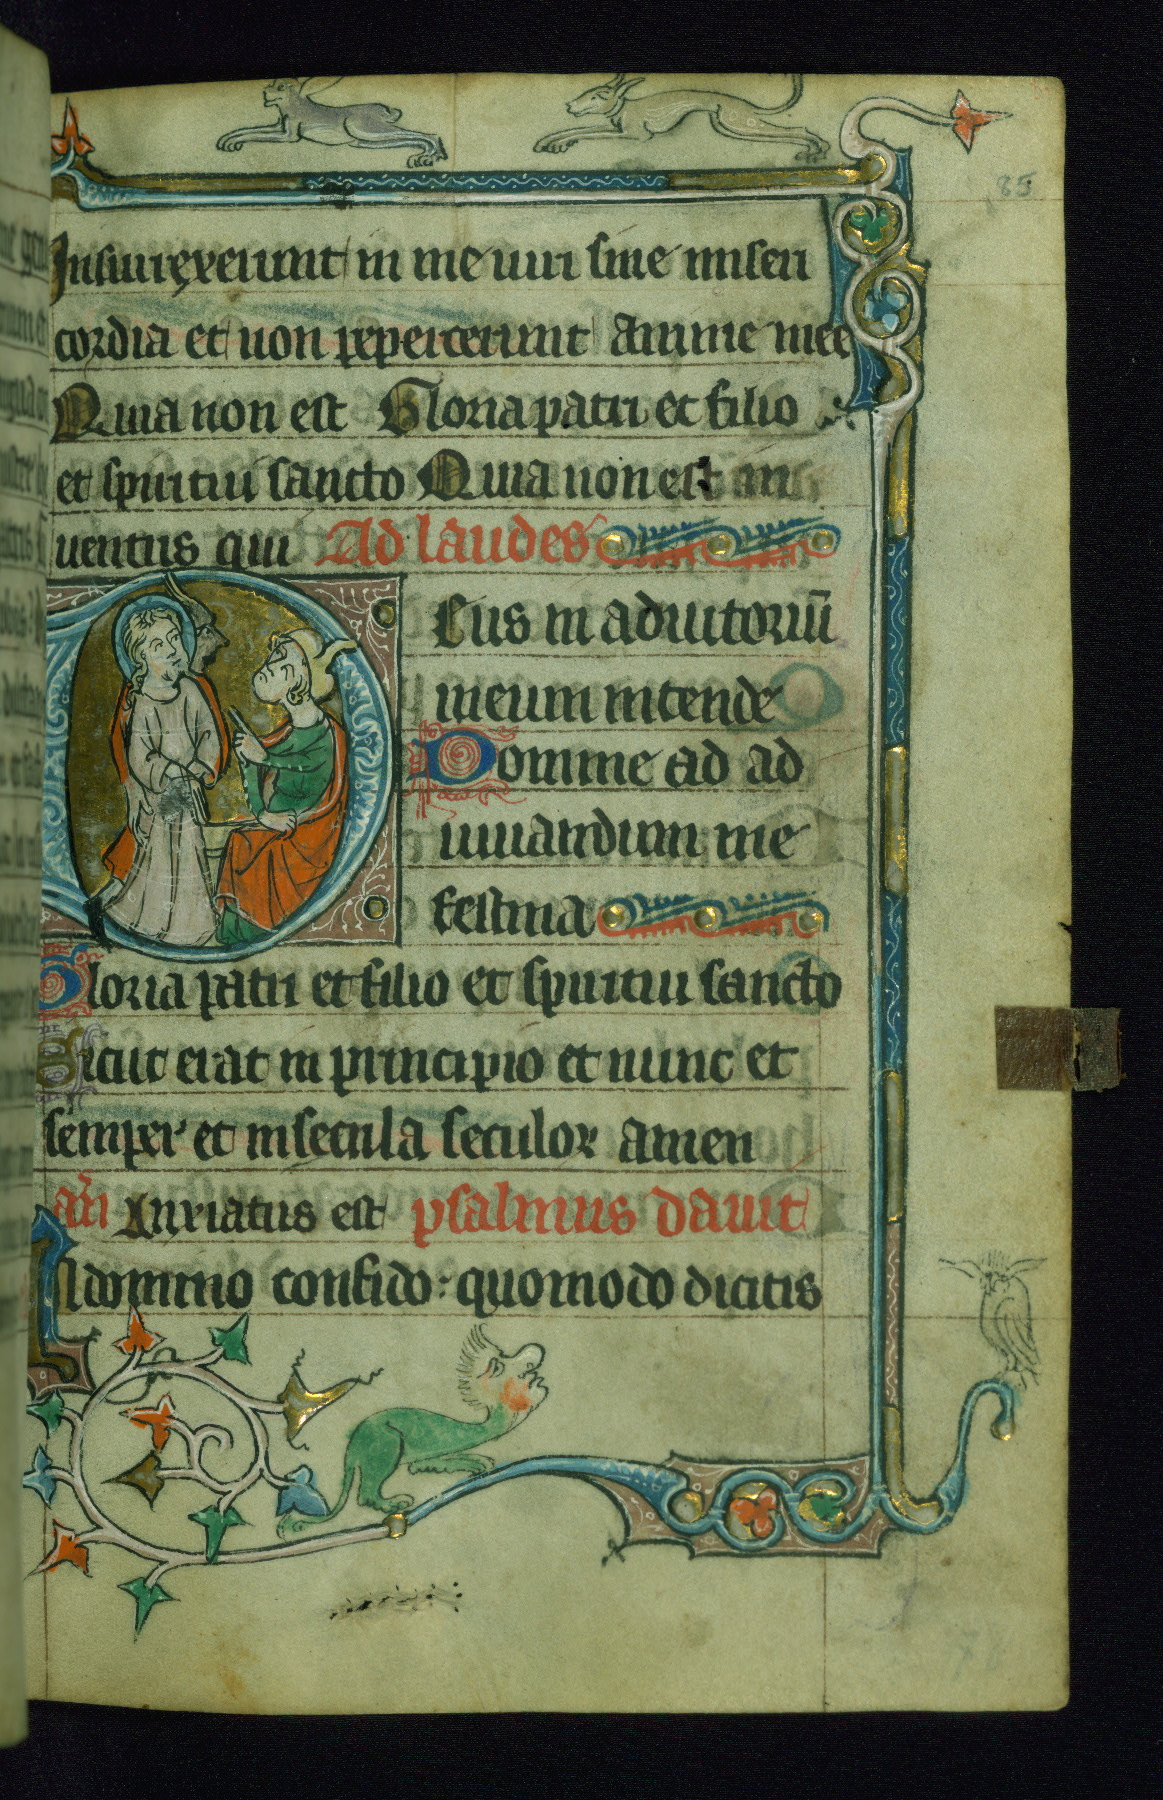 85
Insurrexerunt in me uiri sine miseri
cordia et non pepercerunt anime mee
Quia non est Gloria patri et filio
et spiritui sancto Quia non est in
uentus qui Ad laudes
Eus in adiutoriū
meum intende
Domine ad ad
iuuandum me
festina
Gloria patri et filio et spiritui sancto
Sicut erat in principio et nunc et
semper et in secula seculor amen
an̄ Anxiatus est psalmus dauit
In domino confido: quomodo dicitis